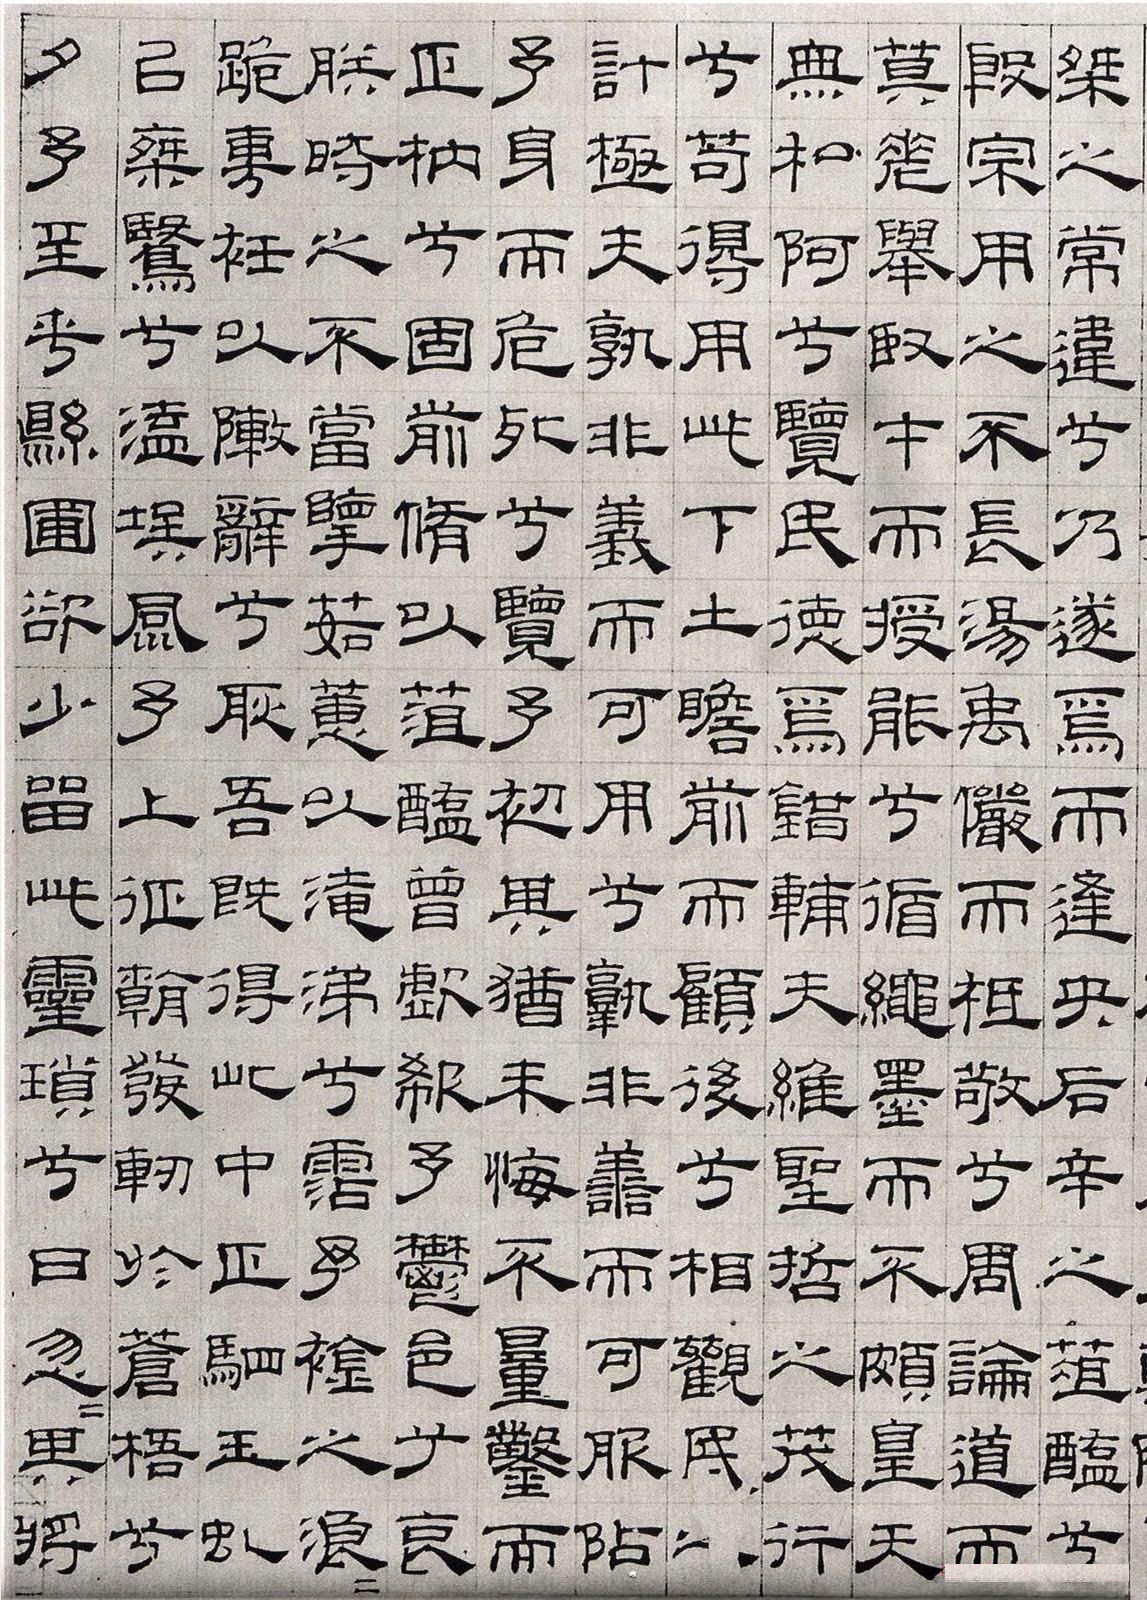 桀之常違兮乃遂焉而逢央后辛之菹醢兮
殷宗用之不長湯禹儼而祗敬兮周論道而
莫差舉臤才而授能兮循繩墨而不頗皇天
無私阿兮覽民德焉錯輔夫維聖哲之茂行
兮苟得用此下土瞻前而顧後兮相觀民之
計極夫孰非義而可用兮孰非善而可服阽
予身而危死兮覽予初其猶未悔不量鑿而
正枘兮固前脩以菹醢曾歔欷予鬱邑兮哀
朕時之不當擥茹蕙以淹涕兮霑予襟之浪=
跪敷衽以敶辭兮耿吾既得此中正駟玉虬
以乘鷖兮溘埃風予上征朝發軔於蒼梧兮
夕予至乎縣圃欲少留此靈瑣兮日忽=其將